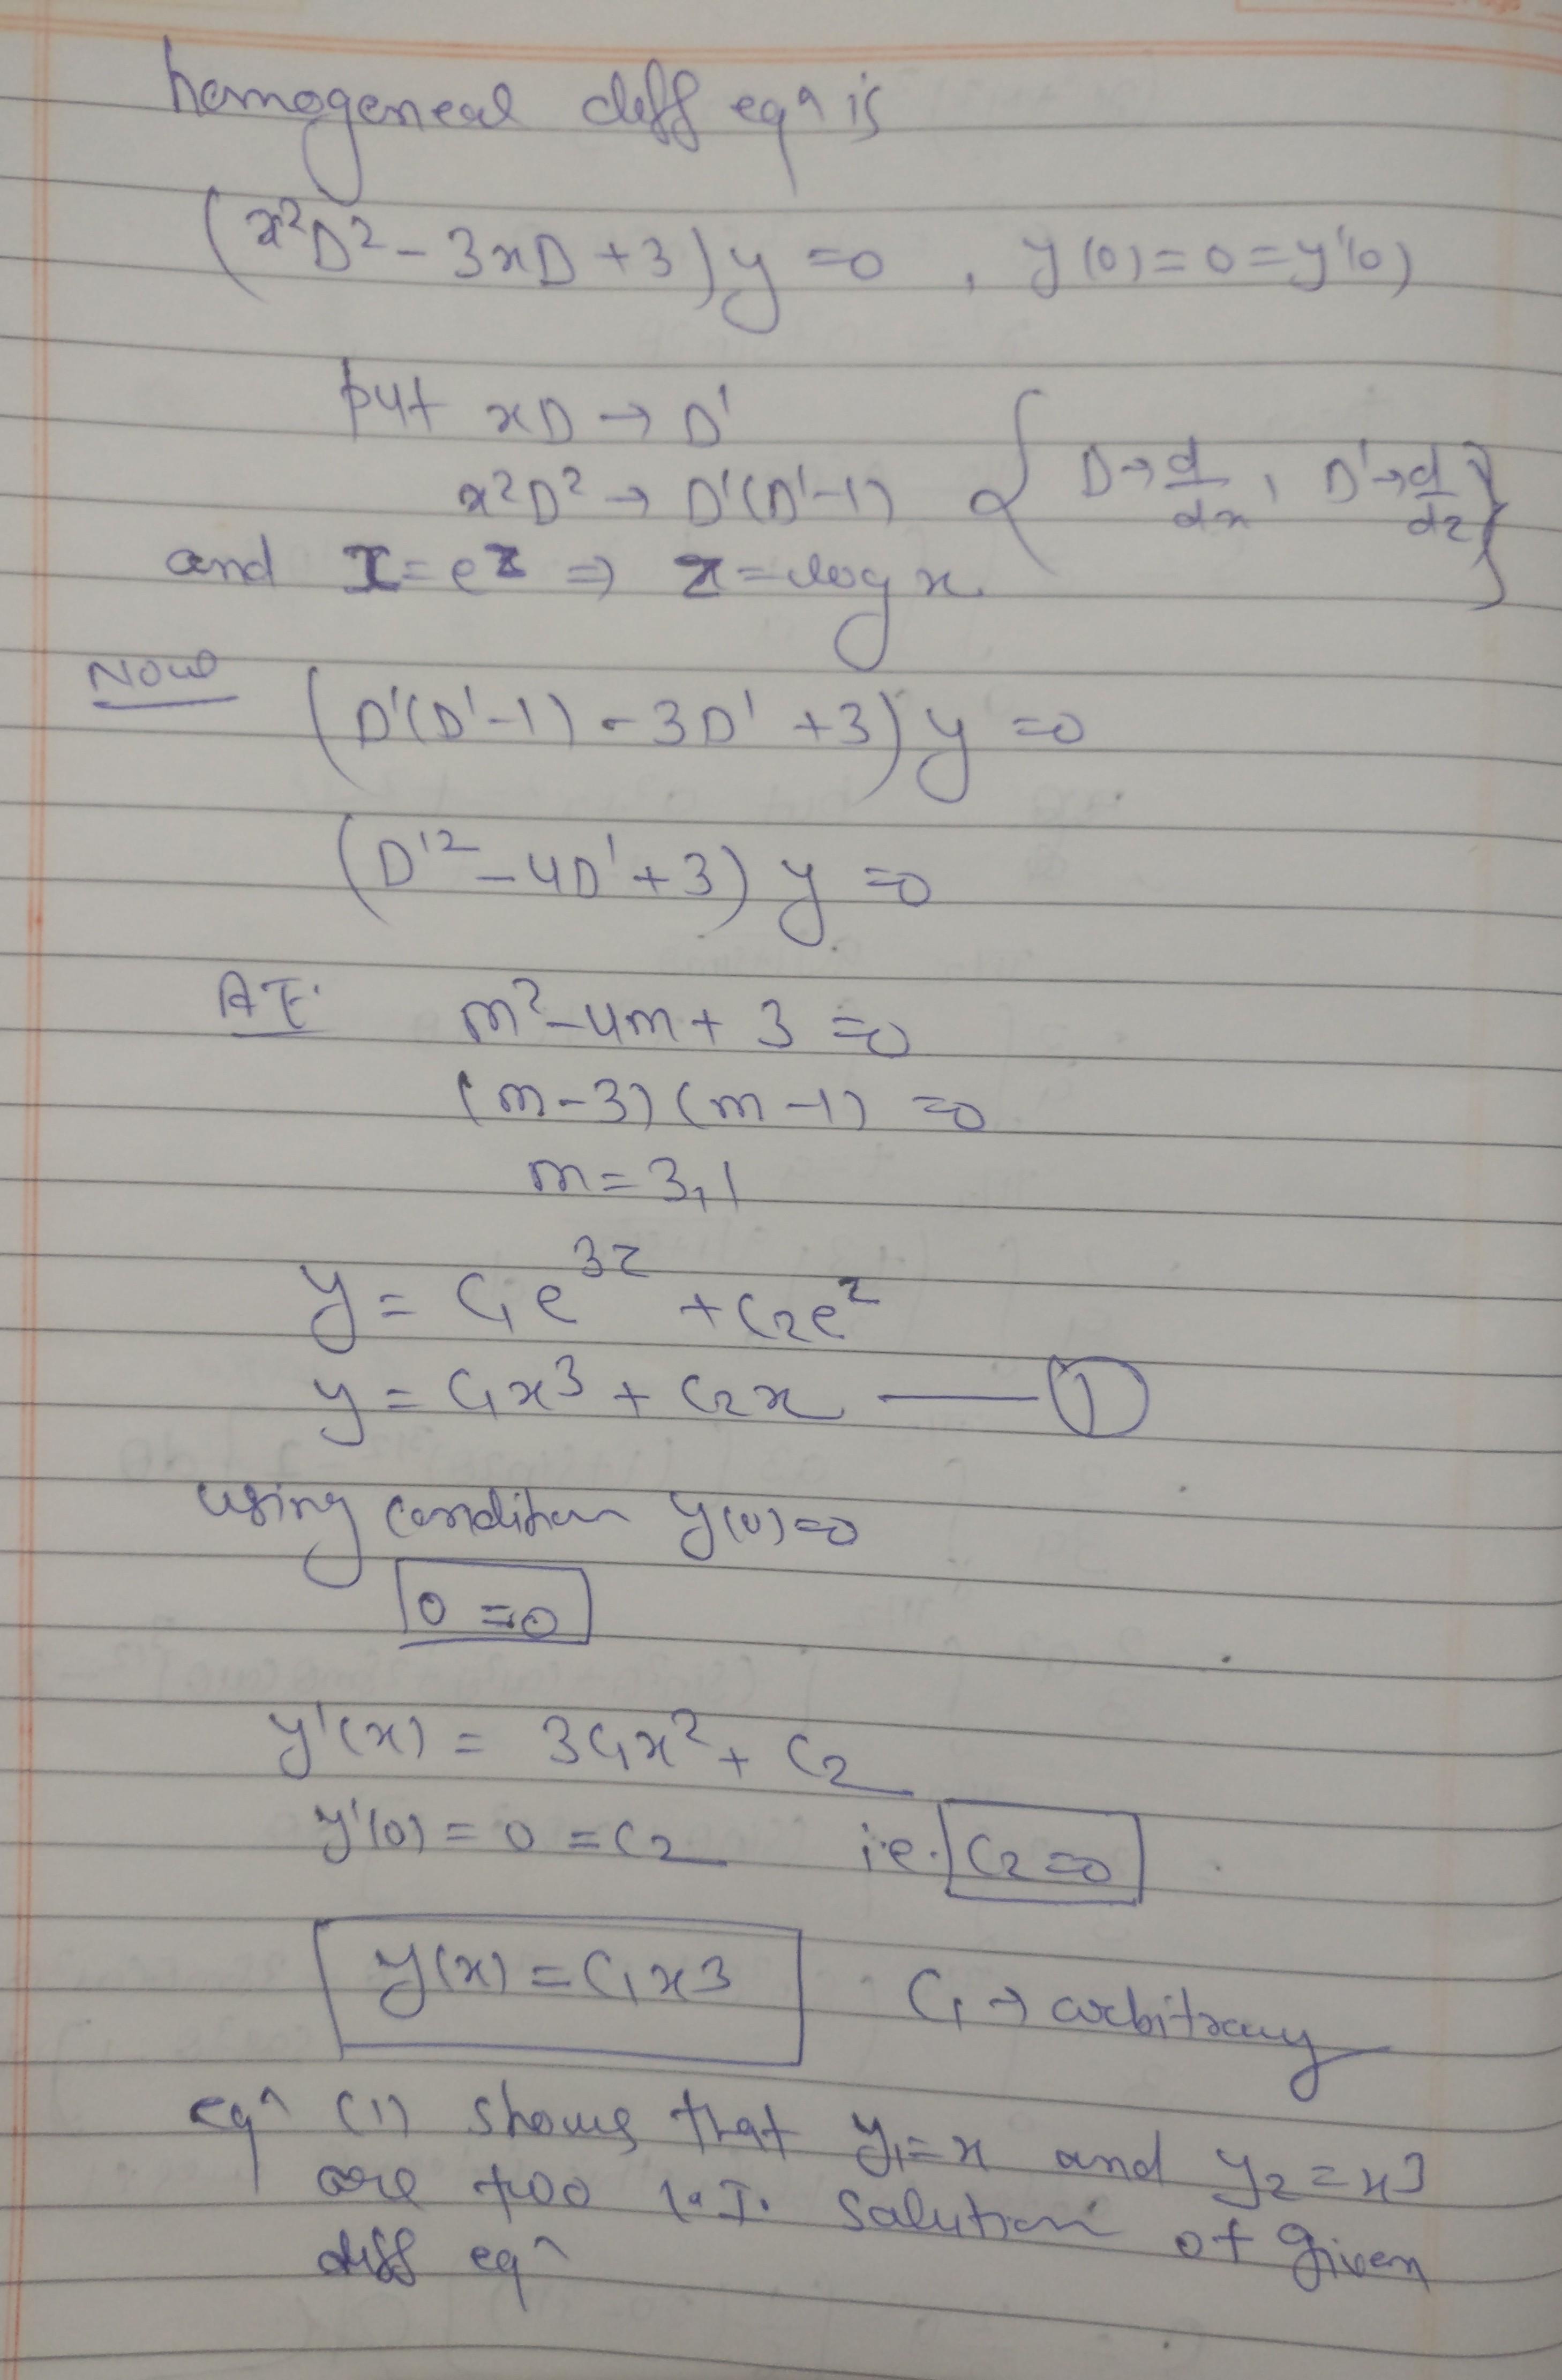 homogeneal diff eqⁿ is
(x²D² - 3xD + 3)y = 0 , y(0) = 0 = y'(0)
put xD → D'
x²D² → D'(D'-1) { D → d/dx , D' → d/dz }
and x = e^z ⇒ z = log x.
Now (D'(D'-1) - 3D' + 3)y = 0
(D'² - 4D' + 3) y = 0
A.E. m² - 4m + 3 = 0
(m-3)(m-1) = 0
m = 3,1
y = C₁e^3z + C₂e^z
y = C₁x³ + C₂x —— ①
using condition y(0) = 0
0 = 0
y'(x) = 3C₁x² + C₂
y'(0) = 0 = C₂ i.e. C₂ = 0
y(x) = C₁x3 C₁ → arbitrary
eqⁿ (1) shows that y₁ = x and y₂ = x3
are two L.I. solution of given
diff eqⁿ